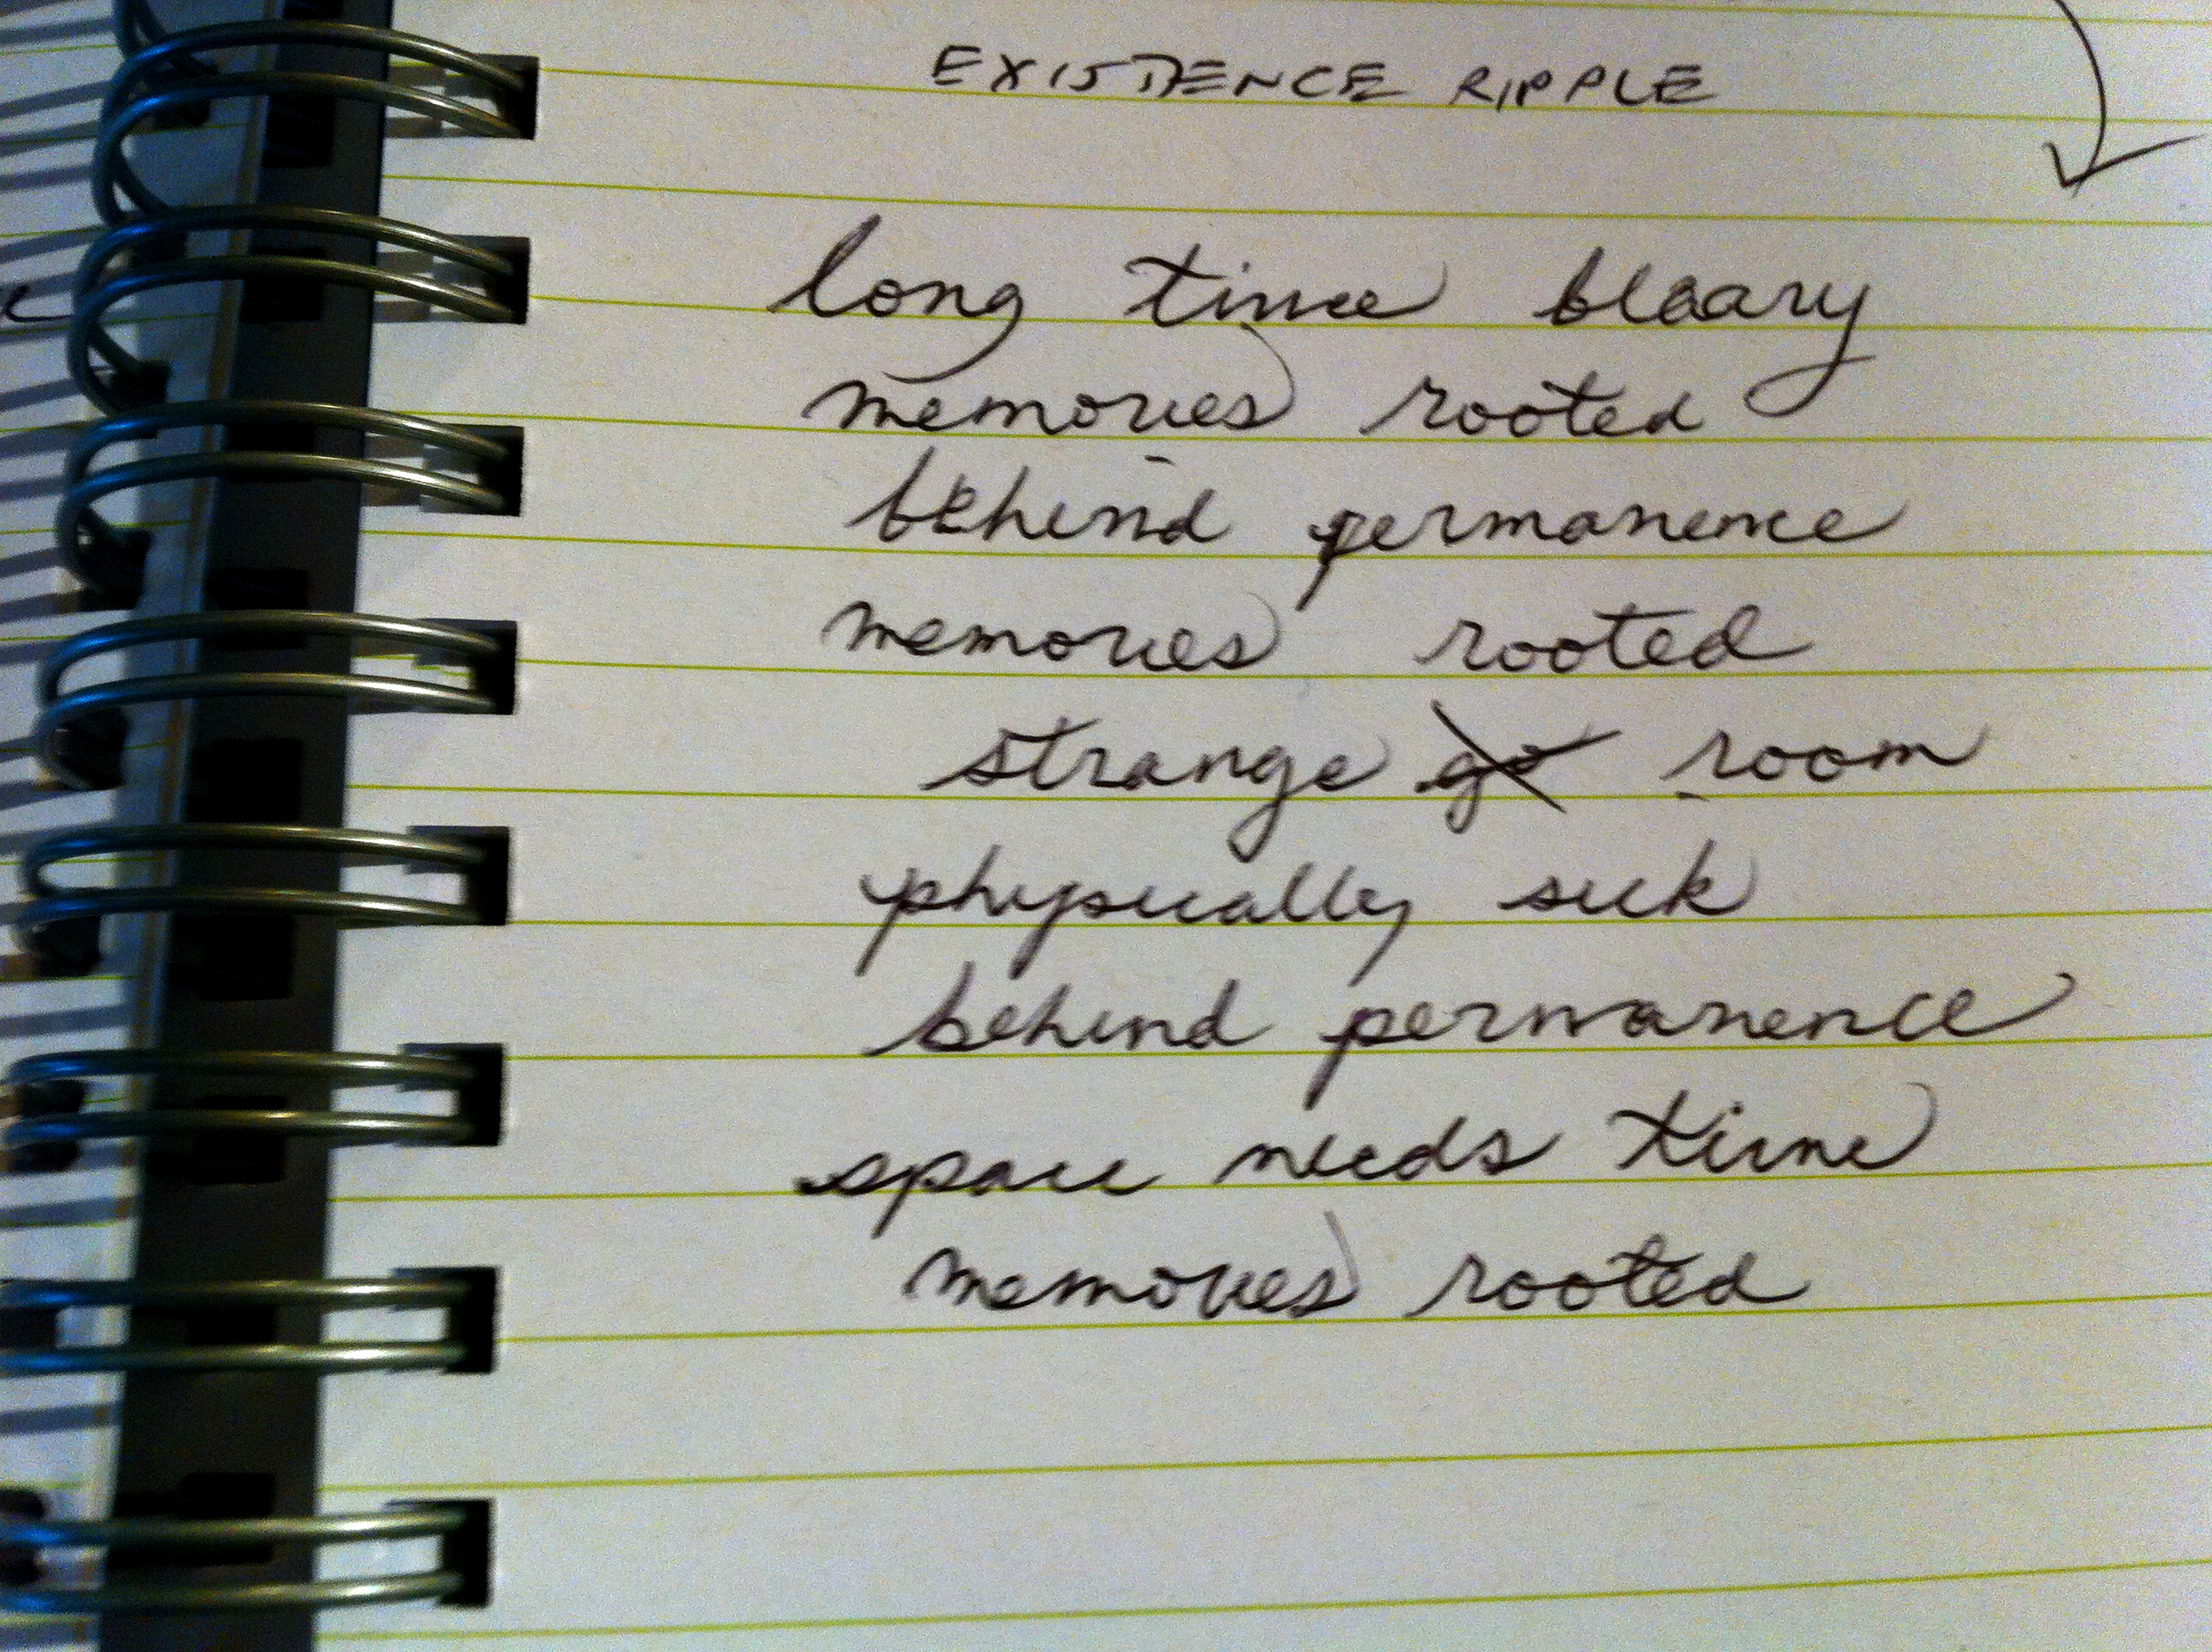 EXISTENCE RIPPLE
long time bleary
memories rooted
behind permanence
memories rooted
strange go room
physically sick
behind permanence
space needs time
memories rooted